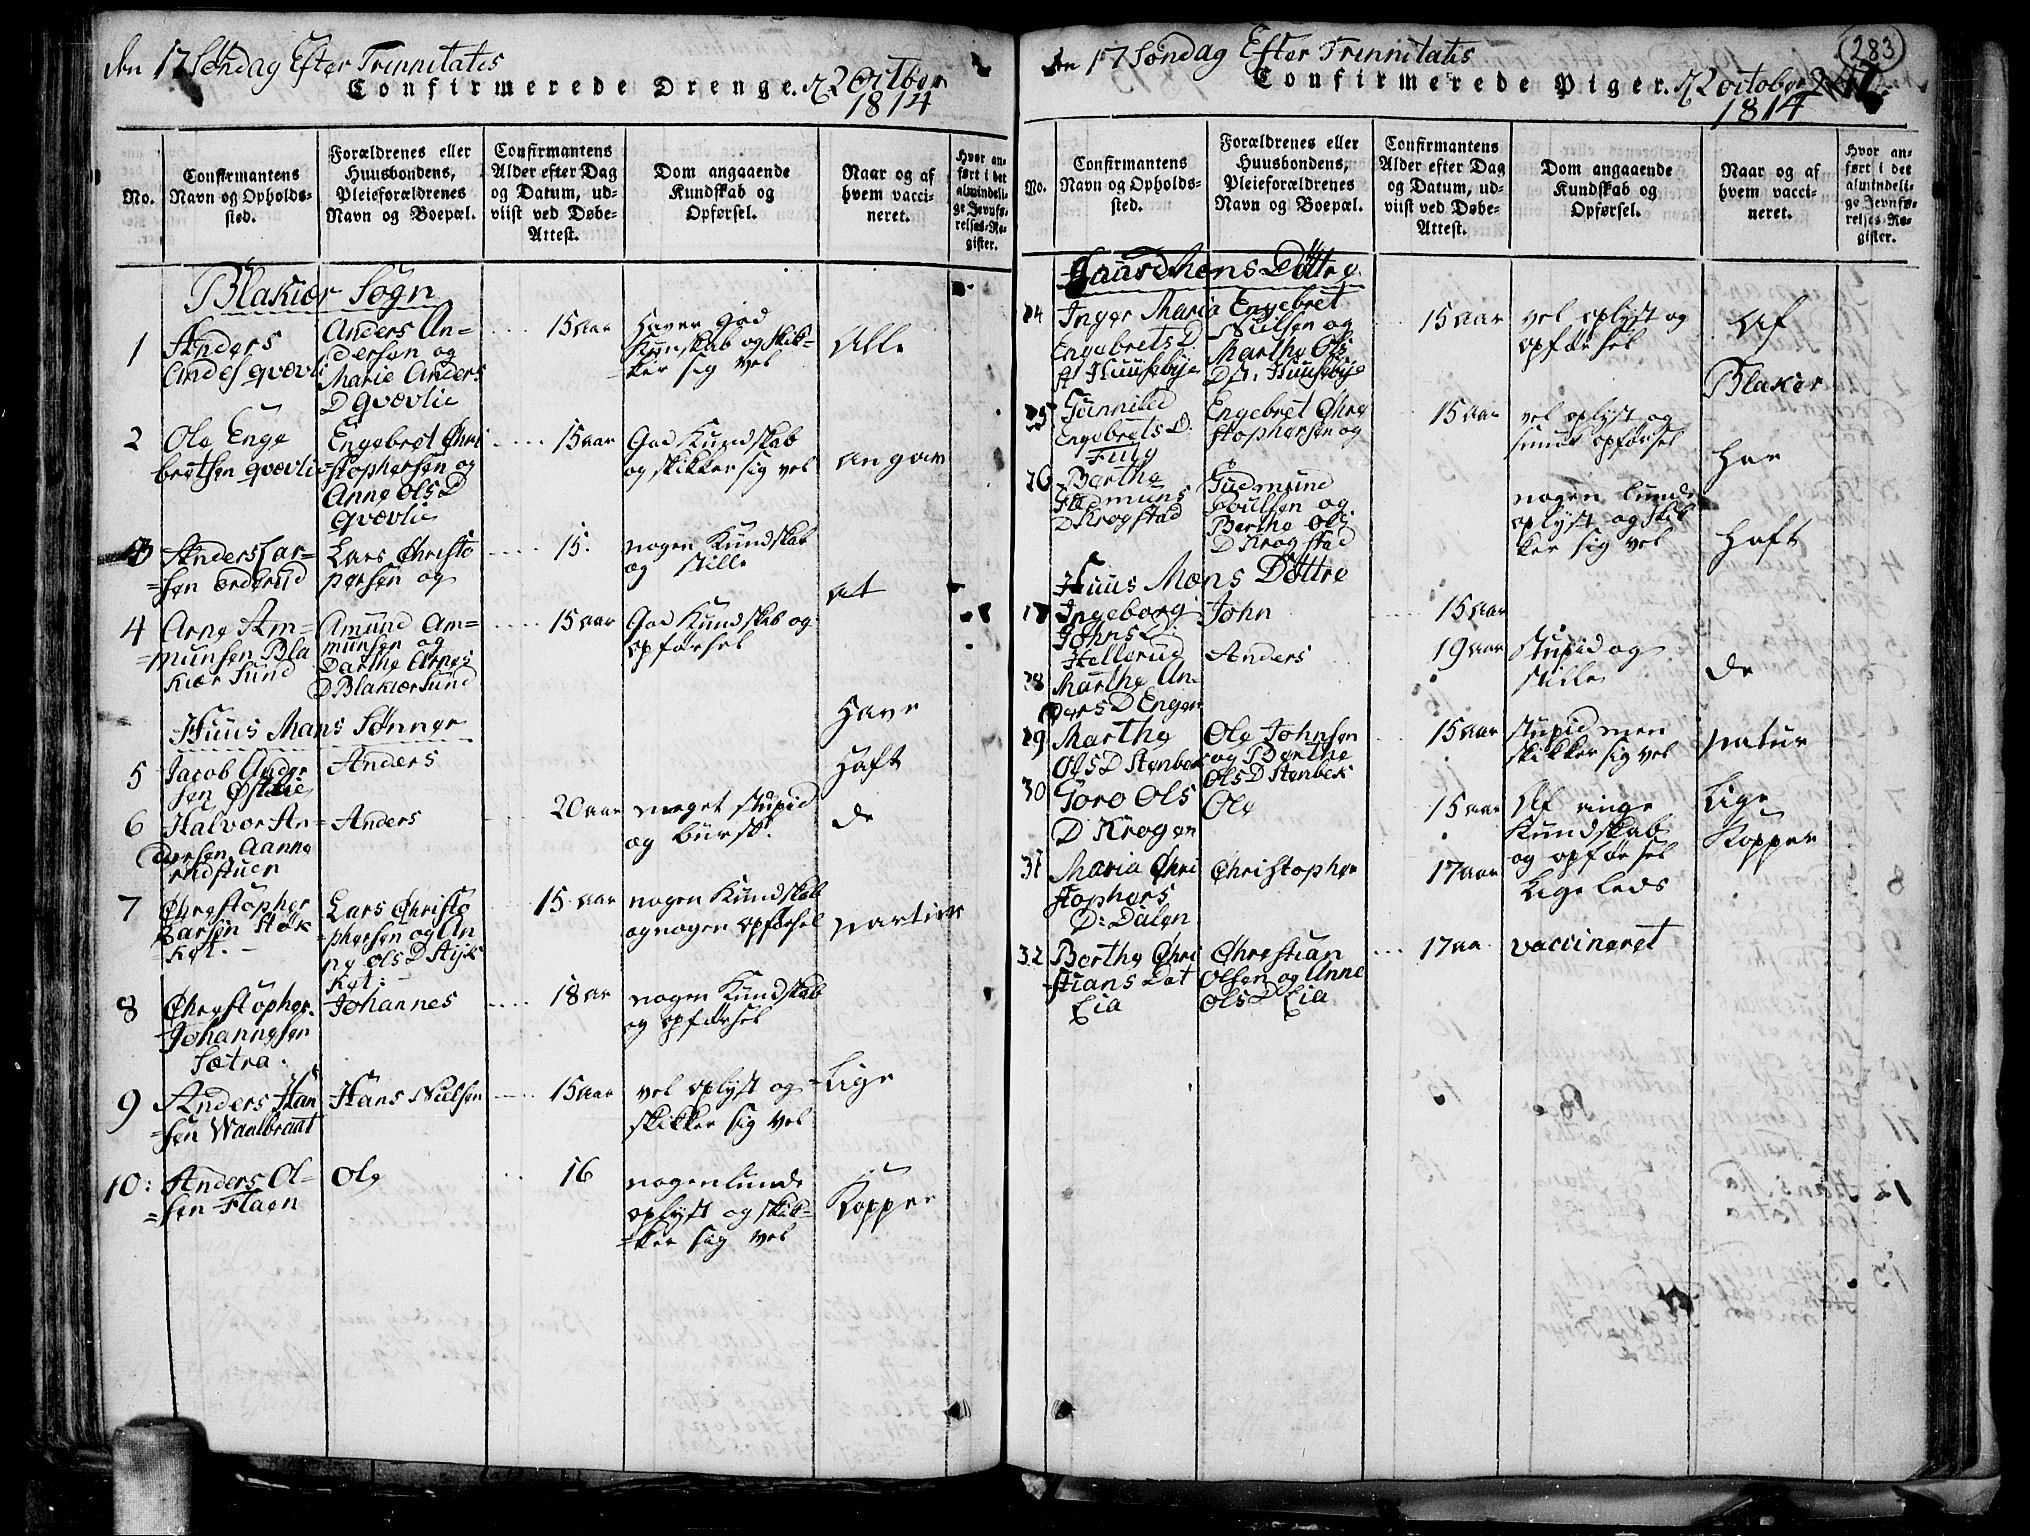 den 17 Søndag Efter Trinnitatis
Confirmerede Drenge. d 2 October
1814
No.
Confirmantens
Navn og Opholds-
sted.
Forældrenes eller
Huusbondens,
Pleieforældrenes
Navn og Boepæl.
Confirmantens
Alder efter Dag
og Datum, ud-
viist ved Døbe-
Attest.
Dom angaaende
Kundskab og
Opførsel.
Naar og af
hvem vacci-
neret.
Hvor an-
ført i det
almindeli-
ge Jevnfø-
relses-Re-
gister.
Blakiær Sogn
1
Anders
Andes Qvævli
Anders An-
dersen og
Marie Anders
D Qvævlie
15 aar
Haver god
Kundskab og skik-
ker sig vel
Alle
2
Ole Enge
bretsen Qvævlie
Engebret Chri
stophersen og
Anne Ols D
Qvævlie
15 aar
God Kundskab
og skikker sig vel
angav
3
Anders Lar-
sen
Lars Christo
phersen og
15.
nogen Kundskab
og stille
at
4
Arne Am-
munsen Bla
kiær Sund
Amund Am-
munsen og
Darthe Arnes
D Blakiær Sund
15 aar
God Kundskab og
opførsel
Huus Mans Sønner
Have
5
Jacob Ander
sen
Anders
Haft
6
Halvor An-
dersen Aanne
rudstuen
Anders
20 aar
meget stupid
og
de
7
Christopher
Larsen Støk
ket.
Lars Christo
phersen og An
ne Ols D Styk
ket.
15 aar
nogen Kundskab
og nogen opførsel
8
Christopher
Johannesen
Sætra.
Johannes
18 aar
nogen Kundskab
og opførsel
9
Anders Han
sen Waalbraat
Hans Nielsen
15 aar
vel oplyst og
skikker sig vel
Lige
10:
Anders Ol-
sen Flaen
Ole
16
nogenlunde
oplyst og skik-
ker sig vel
Kopper
283
den 17 Søndag Efter Trinnitatis
Confirmerede Piger. d 2 october
1814
No.
Confirmantens
Navn og Opholds-
sted.
Forældrenes eller
Huusbondens,
Pleieforældrenes
Navn og Boepæl.
Confirmantens
Alder efter Dag
og Datum, ud-
viist ved Døbe-
Attest.
Dom angaaende
Kundskab og
Opførsel.
Naar og af
hvem vacci-
neret.
Hvor an-
ført i det
almindeli-
ge Jevnfø-
relses-Re-
gister.
Gaard Mens Døttre
24
Inger Maria
Engebrets D
Huusebye
Engebret
Nielsen og
Marthe Ols
D Huusebye
15 aar
vel oplyst og
opførsel
Af
Blakier
25
Gunnild
Engebrets D.
Engebret Chre
stophersen og
15 aar
vel oplyst og
smuk opførsel
Har
26
Berthe
Gudmuns
D Krogstad
Gudmund
Poulsen og
Berthe Ols
D Krogstad
nogenlunde
oplyst og skik
ker sig vel
Haft
Huus Mens Døttre
27
Ingeborg
Johns D.
Hellerud
John
15 aar
28
Marthe An-
ders D Engen
Anders
19 aar
stupid og
stille
de
29
Marthe
Ols D Stenbek
Ole Johnsen
og Berthe
Ols D Stenbek
15 aar
stupid men
skikker sig vel
natur
30
Goro Ols
D Krogen
Ole
15 aar
Af ringe
Kundskab
og opførsel
Lige
Kopper
31
Maria Chri
stophers
D: Dalen
Christopher
17 aar
Ligeleds
32
Berthe Chri
stians Dat
Lia
Christian
Olsen og Anne
Ols D Lia
17 aa
vaccineret